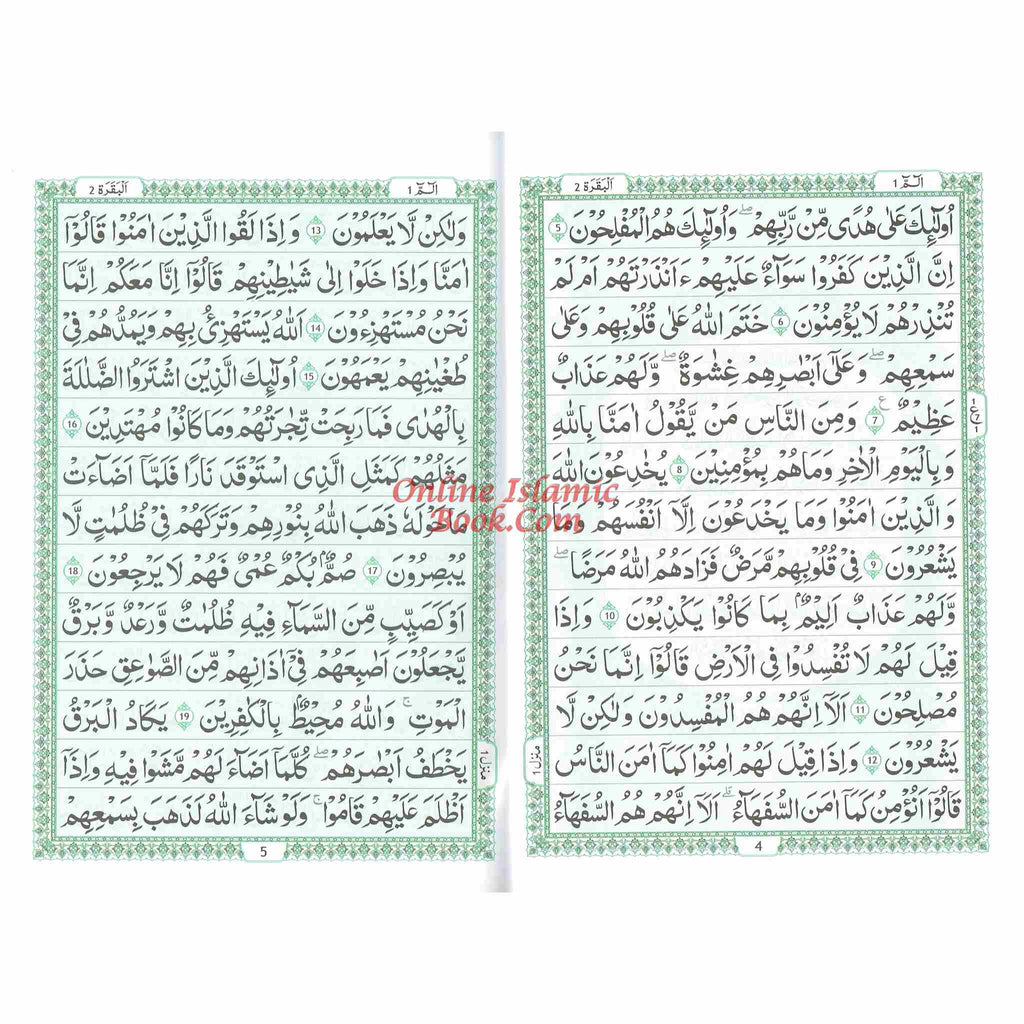 الٓمّٓ 1
البقرة 2
اُولٰٓئِكَ عَلٰى هُدًى مِّنْ رَّبِّهِمْ ۖ وَاُولٰٓئِكَ هُمُ الْمُفْلِحُوْنَ 5
اِنَّ الَّذِيْنَ كَفَرُوْا سَوَآءٌ عَلَيْهِمْ ءَاَنْذَرْتَهُمْ اَمْ لَمْ
تُنْذِرْهُمْ لَا يُؤْمِنُوْنَ 6 خَتَمَ اللّٰهُ عَلٰى قُلُوْبِهِمْ وَعَلٰى
سَمْعِهِمْ ۖ وَعَلٰٓى اَبْصَارِهِمْ غِشَاوَةٌ ۖ وَّلَهُمْ عَذَابٌ
عَظِيْمٌ 7 ع وَمِنَ النَّاسِ مَنْ يَّقُوْلُ اٰمَنَّا بِاللّٰهِ
1 ع 7 1
وَبِالْيَوْمِ الْاٰخِرِ وَمَا هُمْ بِمُؤْمِنِيْنَ 8 يُخٰدِعُوْنَ اللّٰهَ
وَالَّذِيْنَ اٰمَنُوْا وَمَا يَخْدَعُوْنَ اِلَّآ اَنْفُسَهُمْ وَمَا
يَشْعُرُوْنَ 9 فِيْ قُلُوْبِهِمْ مَّرَضٌ فَزَادَهُمُ اللّٰهُ مَرَضًا ۖ
وَّلَهُمْ عَذَابٌ اَلِيْمٌۢ بِمَا كَانُوْا يَكْذِبُوْنَ 10 وَاِذَا
قِيْلَ لَهُمْ لَا تُفْسِدُوْا فِى الْاَرْضِ قَالُوْٓا اِنَّمَا نَحْنُ
مُصْلِحُوْنَ 11 اَلَآ اِنَّهُمْ هُمُ الْمُفْسِدُوْنَ وَلٰكِنْ لَّا
يَشْعُرُوْنَ 12 وَاِذَا قِيْلَ لَهُمْ اٰمِنُوْا كَمَآ اٰمَنَ النَّاسُ
قَالُوْٓا اَنُؤْمِنُ كَمَآ اٰمَنَ السُّفَهَآءُ ۗ اَلَآ اِنَّهُمْ هُمُ السُّفَهَآءُ
منزل 1
4
الٓمّٓ 1
البقرة 2
وَلٰكِنْ لَّا يَعْلَمُوْنَ 13 وَاِذَا لَقُوا الَّذِيْنَ اٰمَنُوْا قَالُوْٓا
اٰمَنَّا وَاِذَا خَلَوْا اِلٰى شَيٰطِيْنِهِمْ قَالُوْٓا اِنَّا مَعَكُمْ اِنَّمَا
نَحْنُ مُسْتَهْزِءُوْنَ 14 اَللّٰهُ يَسْتَهْزِئُ بِهِمْ وَيَمُدُّهُمْ فِيْ
طُغْيَانِهِمْ يَعْمَهُوْنَ 15 اُولٰٓئِكَ الَّذِيْنَ اشْتَرَوُا الضَّلٰلَةَ
بِالْهُدٰى فَمَا رَبِحَتْ تِّجَارَتُهُمْ وَمَا كَانُوْا مُهْتَدِيْنَ 16
مَثَلُهُمْ كَمَثَلِ الَّذِى اسْتَوْقَدَ نَارًا فَلَمَّآ اَضَآءَتْ
مَا حَوْلَهٗ ذَهَبَ اللّٰهُ بِنُوْرِهِمْ وَتَرَكَهُمْ فِيْ ظُلُمٰتٍ لَّا
يُبْصِرُوْنَ 17 صُمٌّۢ بُكْمٌ عُمْيٌ فَهُمْ لَا يَرْجِعُوْنَ 18
اَوْ كَصَيِّبٍ مِّنَ السَّمَآءِ فِيْهِ ظُلُمٰتٌ وَّرَعْدٌ وَّبَرْقٌ
يَجْعَلُوْنَ اَصَابِعَهُمْ فِيْٓ اٰذَانِهِمْ مِّنَ الصَّوَاعِقِ حَذَرَ
الْمَوْتِ ۚ وَاللّٰهُ مُحِيْطٌۢ بِالْكٰفِرِيْنَ 19 يَكَادُ الْبَرْقُ
يَخْطَفُ اَبْصَارَهُمْ ۖ كُلَّمَآ اَضَآءَ لَهُمْ مَّشَوْا فِيْهِ وَاِذَآ
اَظْلَمَ عَلَيْهِمْ قَامُوْا ۚ وَلَوْ شَآءَ اللّٰهُ لَذَهَبَ بِسَمْعِهِمْ
منزل 1
5
Online Islamic
Book.Com